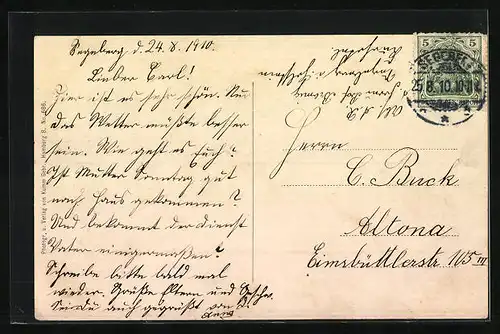 Segeberg d. 24.8.1910.
Lieber Carl!
Hier ist es sehr schön. Nur
das Wetter müßte besser
sein. Wie geht es Euch?
Ist Mutter Sonntag gut
nach Haus gekommen?
Und bekommt der Dienst
Vater einigermaßen?
Schreibe bitte bald mal
wieder. Grüße Eltern und Geschw.
Sei du auch gegrüßt von D.
Herrn
C. Buck
Altona
Eimsbüttlerstr. 105 III
5 5
SEGEBERG
25.8.10.10-11V